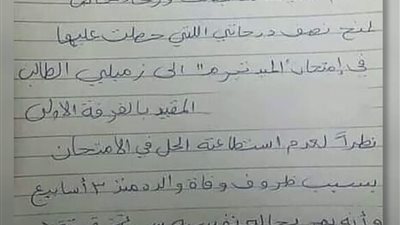 لمنح نصف درجاتي اللتي حصلت عليها
في إمتحان "الميد تيرم" الى زميلي الطالب
المقيد بالفرقة الاولى
نظراً لعدم استطاعته الحل في الأمتحان
بسبب ظروف وفاة والده منذ ٣ أسابيع
وأنه يمر بحالة نفسية